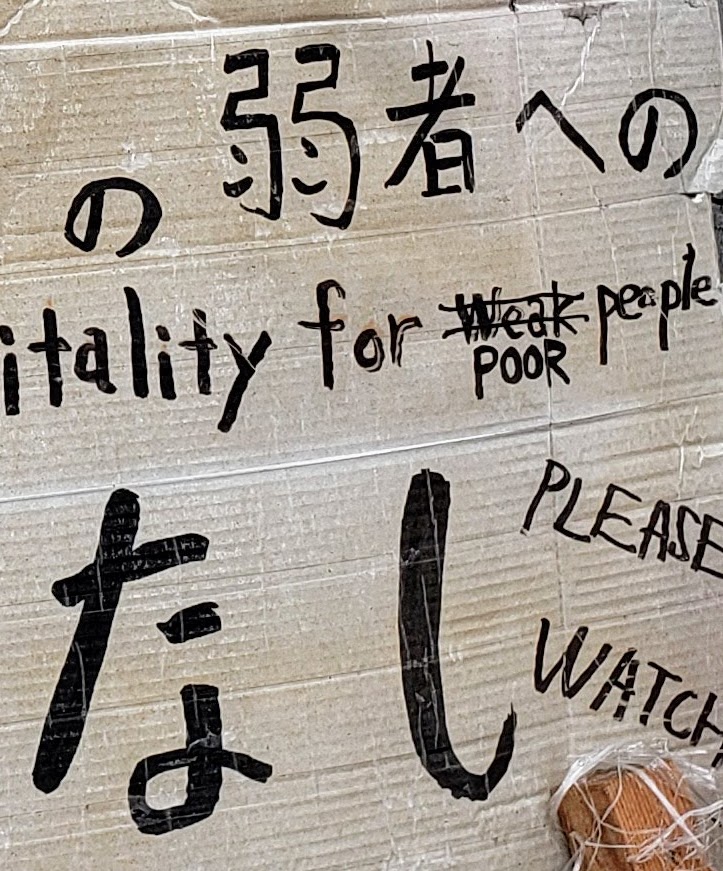 の弱者への
itality for Weak peaple
POOR
なし
PLEASE
WATCH